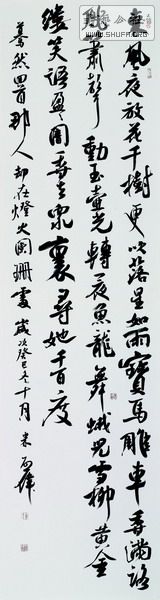 WWW.SHUFR.COM
東風夜放花千樹更吹落星如雨寶馬雕車香滿路
鳳簫聲動玉壺光轉一夜魚龍舞蛾兒雪柳黃金
縷笑語盈盈暗香去眾裏尋她千百度
驀然回首那人却在燈火闌珊處 歲次癸巳冬十月